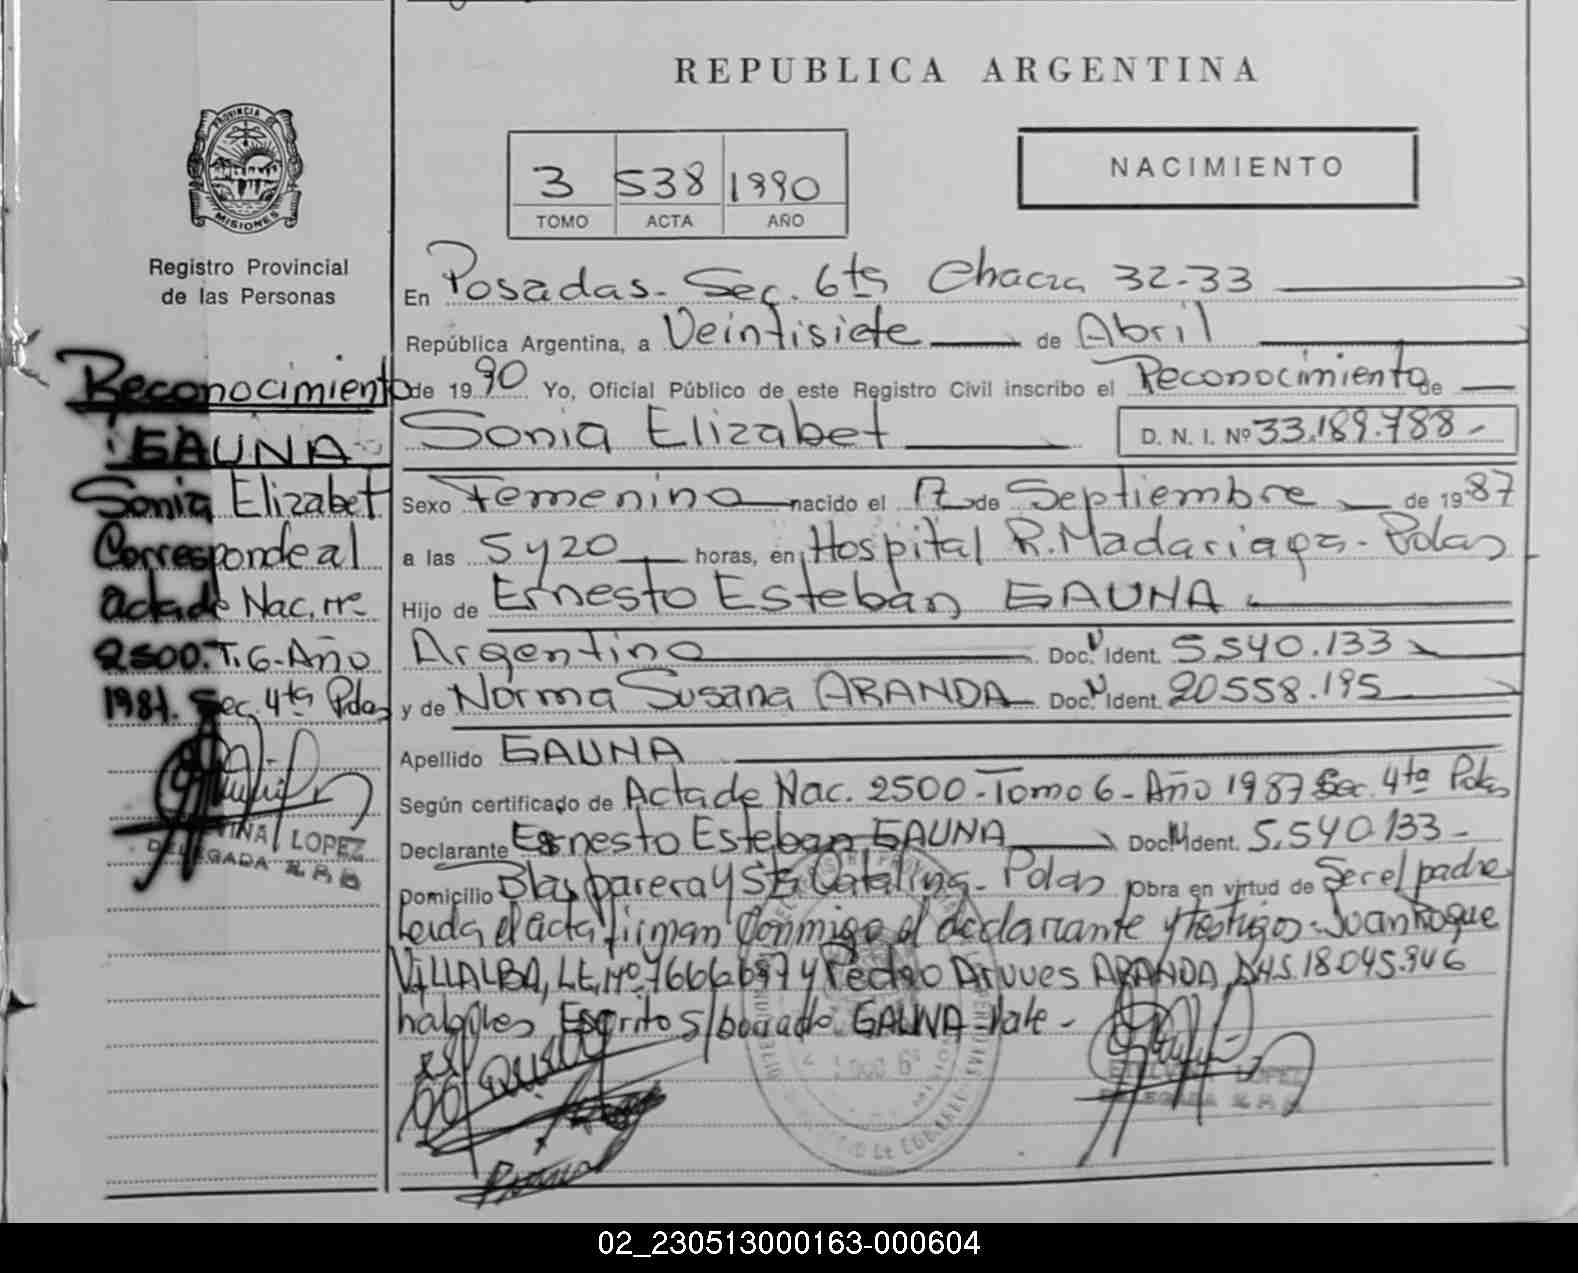 REPUBLICA ARGENTINA
PROVINCIA DE
MISIONES
Registro Provincial
de las Personas
3 538 1990
TOMO ACTA AÑO
NACIMIENTO
En Posadas - Sec. 6ta Chacra 32-33
República Argentina, a Veintisiete de Abril
de 1990 Yo, Oficial Público de este Registro Civil inscribo el Reconocimiento de
Sonia Elizabet D. N. I. Nº 33.189.788-
Sexo Femenino nacido el 17 de Septiembre de 1987
a las 5 y 20 horas, en Hospital R. Madariaga - Pdas
Hijo de Ernesto Esteban GAUNA
Argentino Doc. N Ident. 5.540.133
y de Norma Susana ARANDA Doc. N Ident. 20558.195
Apellido GAUNA
Según certificado de Acta de Nac. 2500 - Tomo 6 - Año 1987 Sec. 4ta Pdas
Declarante Ernesto Esteban GAUNA Doc. N Ident. 5.540.133-
Domicilio Blas parera y Sta Catalina - Pdas Obra en virtud de Ser el padre
Leida el acta firman Conmigo el declarante y testigos: Juan Roque
VILLALBA, L.E. Nº y Pedro ARANDA 18.045.946
habiles Escrito s/borrado GAUNA Vale -
Reconocimiento
GAUNA
Sonia Elizabet
Corresponde al
acta de Nac. nº
2500. T. 6 - Año
1987. Sec. 4ta Pdas
LOPEZ
DELEGADA
LOPEZ
DELEGADA
02_230513000163-000604